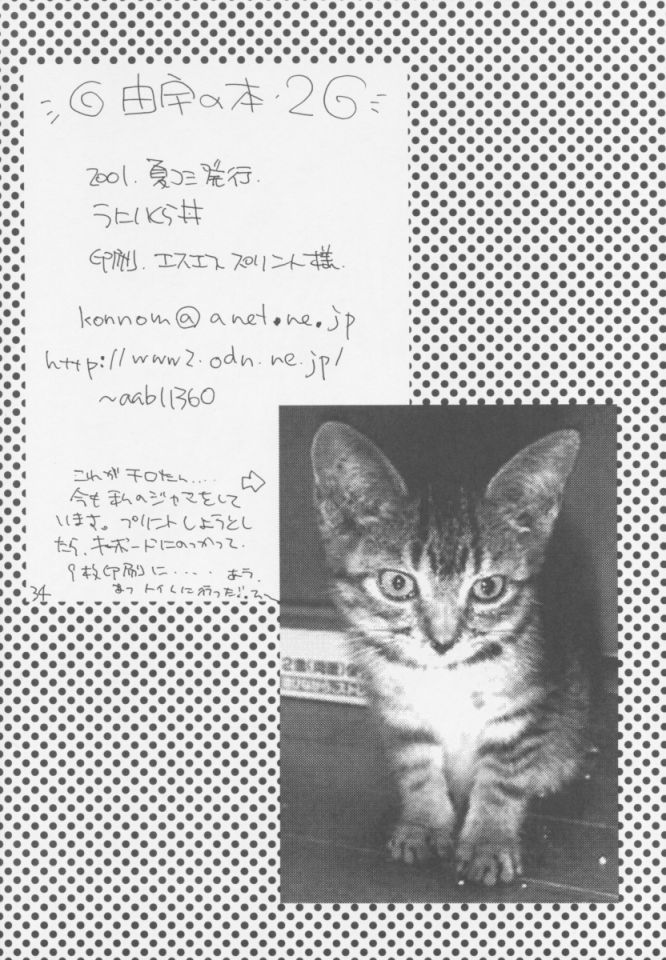 由宇の本・2
2001. 夏コミ発行.
印刷. エスエスプリント様.
konnom@anet.ne.jp
http://www2.odn.ne.jp/
~aab11360
これがチロたん....
今も私のジャマをして
います。プリントしようとし
たら、キーボードにのっかって.
9枚印刷に....
34